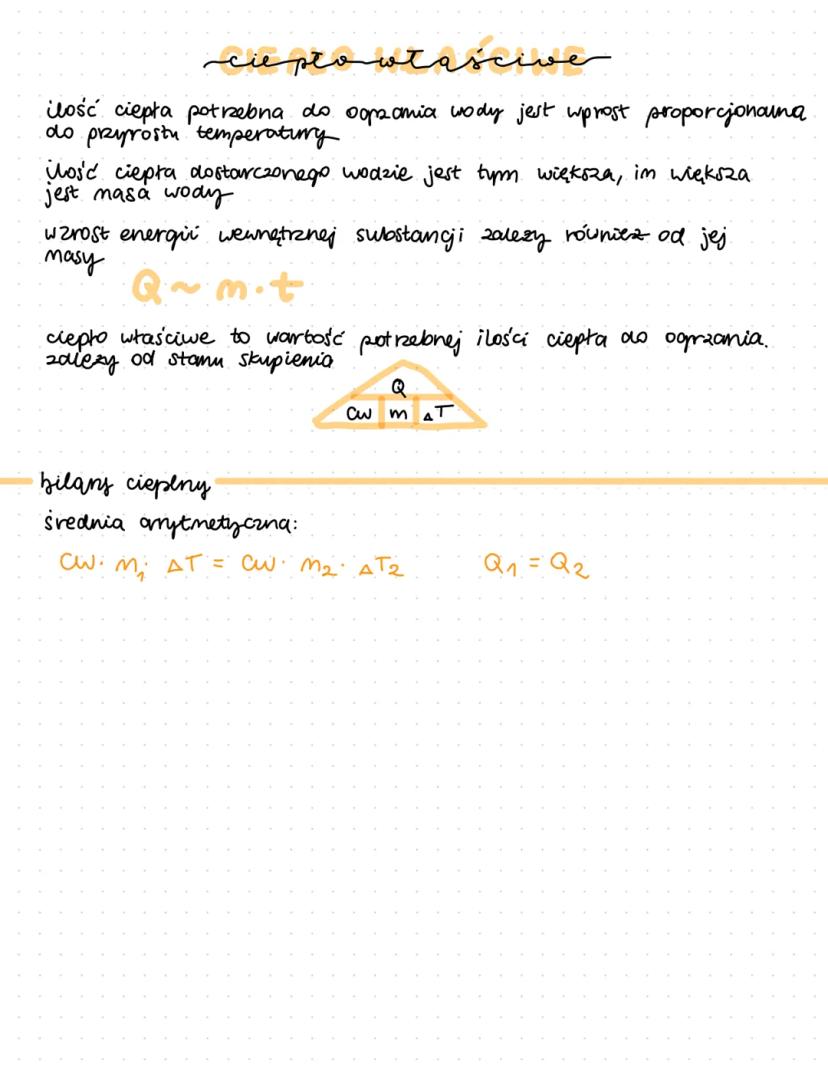 ciepło właściwe
ilość ciepła potrzebna do ogrzania wody jest wprost proporcjonalna
do przyrostu temperatury
ilość ciepła dostarczonego wodzie jest tym większa, im większa
jest masa wody
wzrost energii wewnętrznej substancji zależy również od jej
masy
Q ~ m·t
ciepło właściwe to wartość potrzebnej ilości ciepła do ogrzania.
zależy od stanu skupienia
Q
cw m ΔT
bilans cieplny
średnia arytmetyczna:
cw· m₁· ΔT = cw· m₂· ΔT₂ Q₁ = Q₂